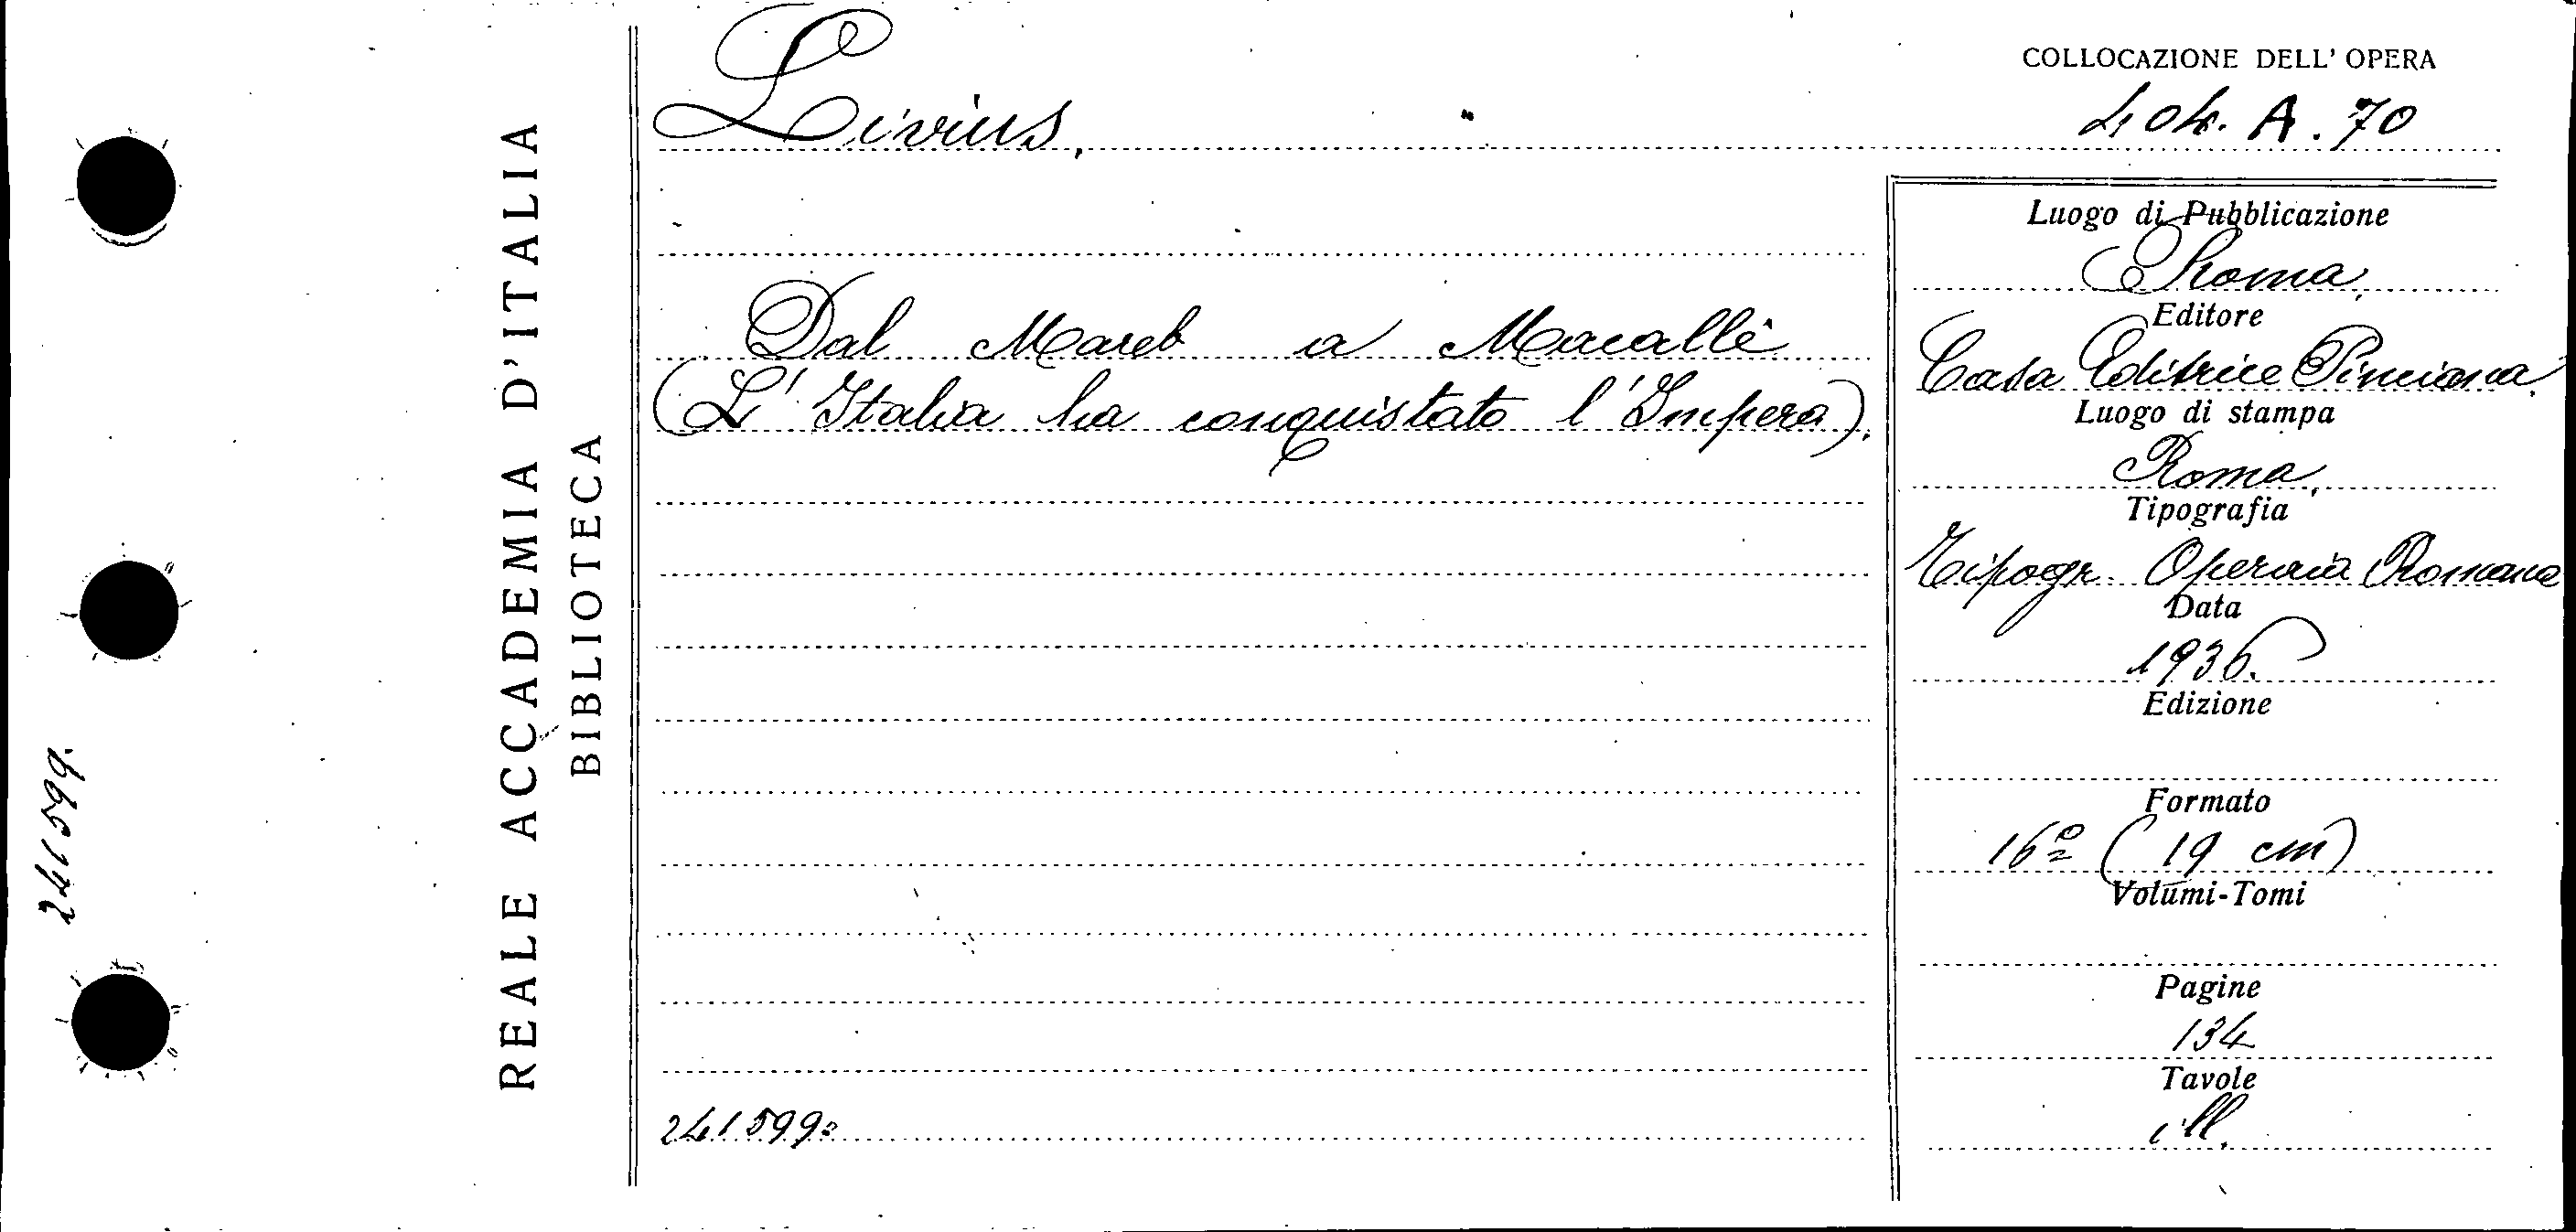 241599.
REALE ACCADEMIA D'ITALIA
BIBLIOTECA
Livius,
Dal Mareb a Macallè
(L'Italia ha conquistato l'Impero).
241599.
COLLOCAZIONE DELL'OPERA
404. A. 70
Luogo di Pubblicazione
Roma,
Editore
Casa Editrice Pinciana,
Luogo di stampa
Roma,
Tipografia
Tipogr. Operaia Romana
Data
1936.
Edizione
Formato
16º (19 cm)
Volumi-Tomi
Pagine
134
Tavole
ill.